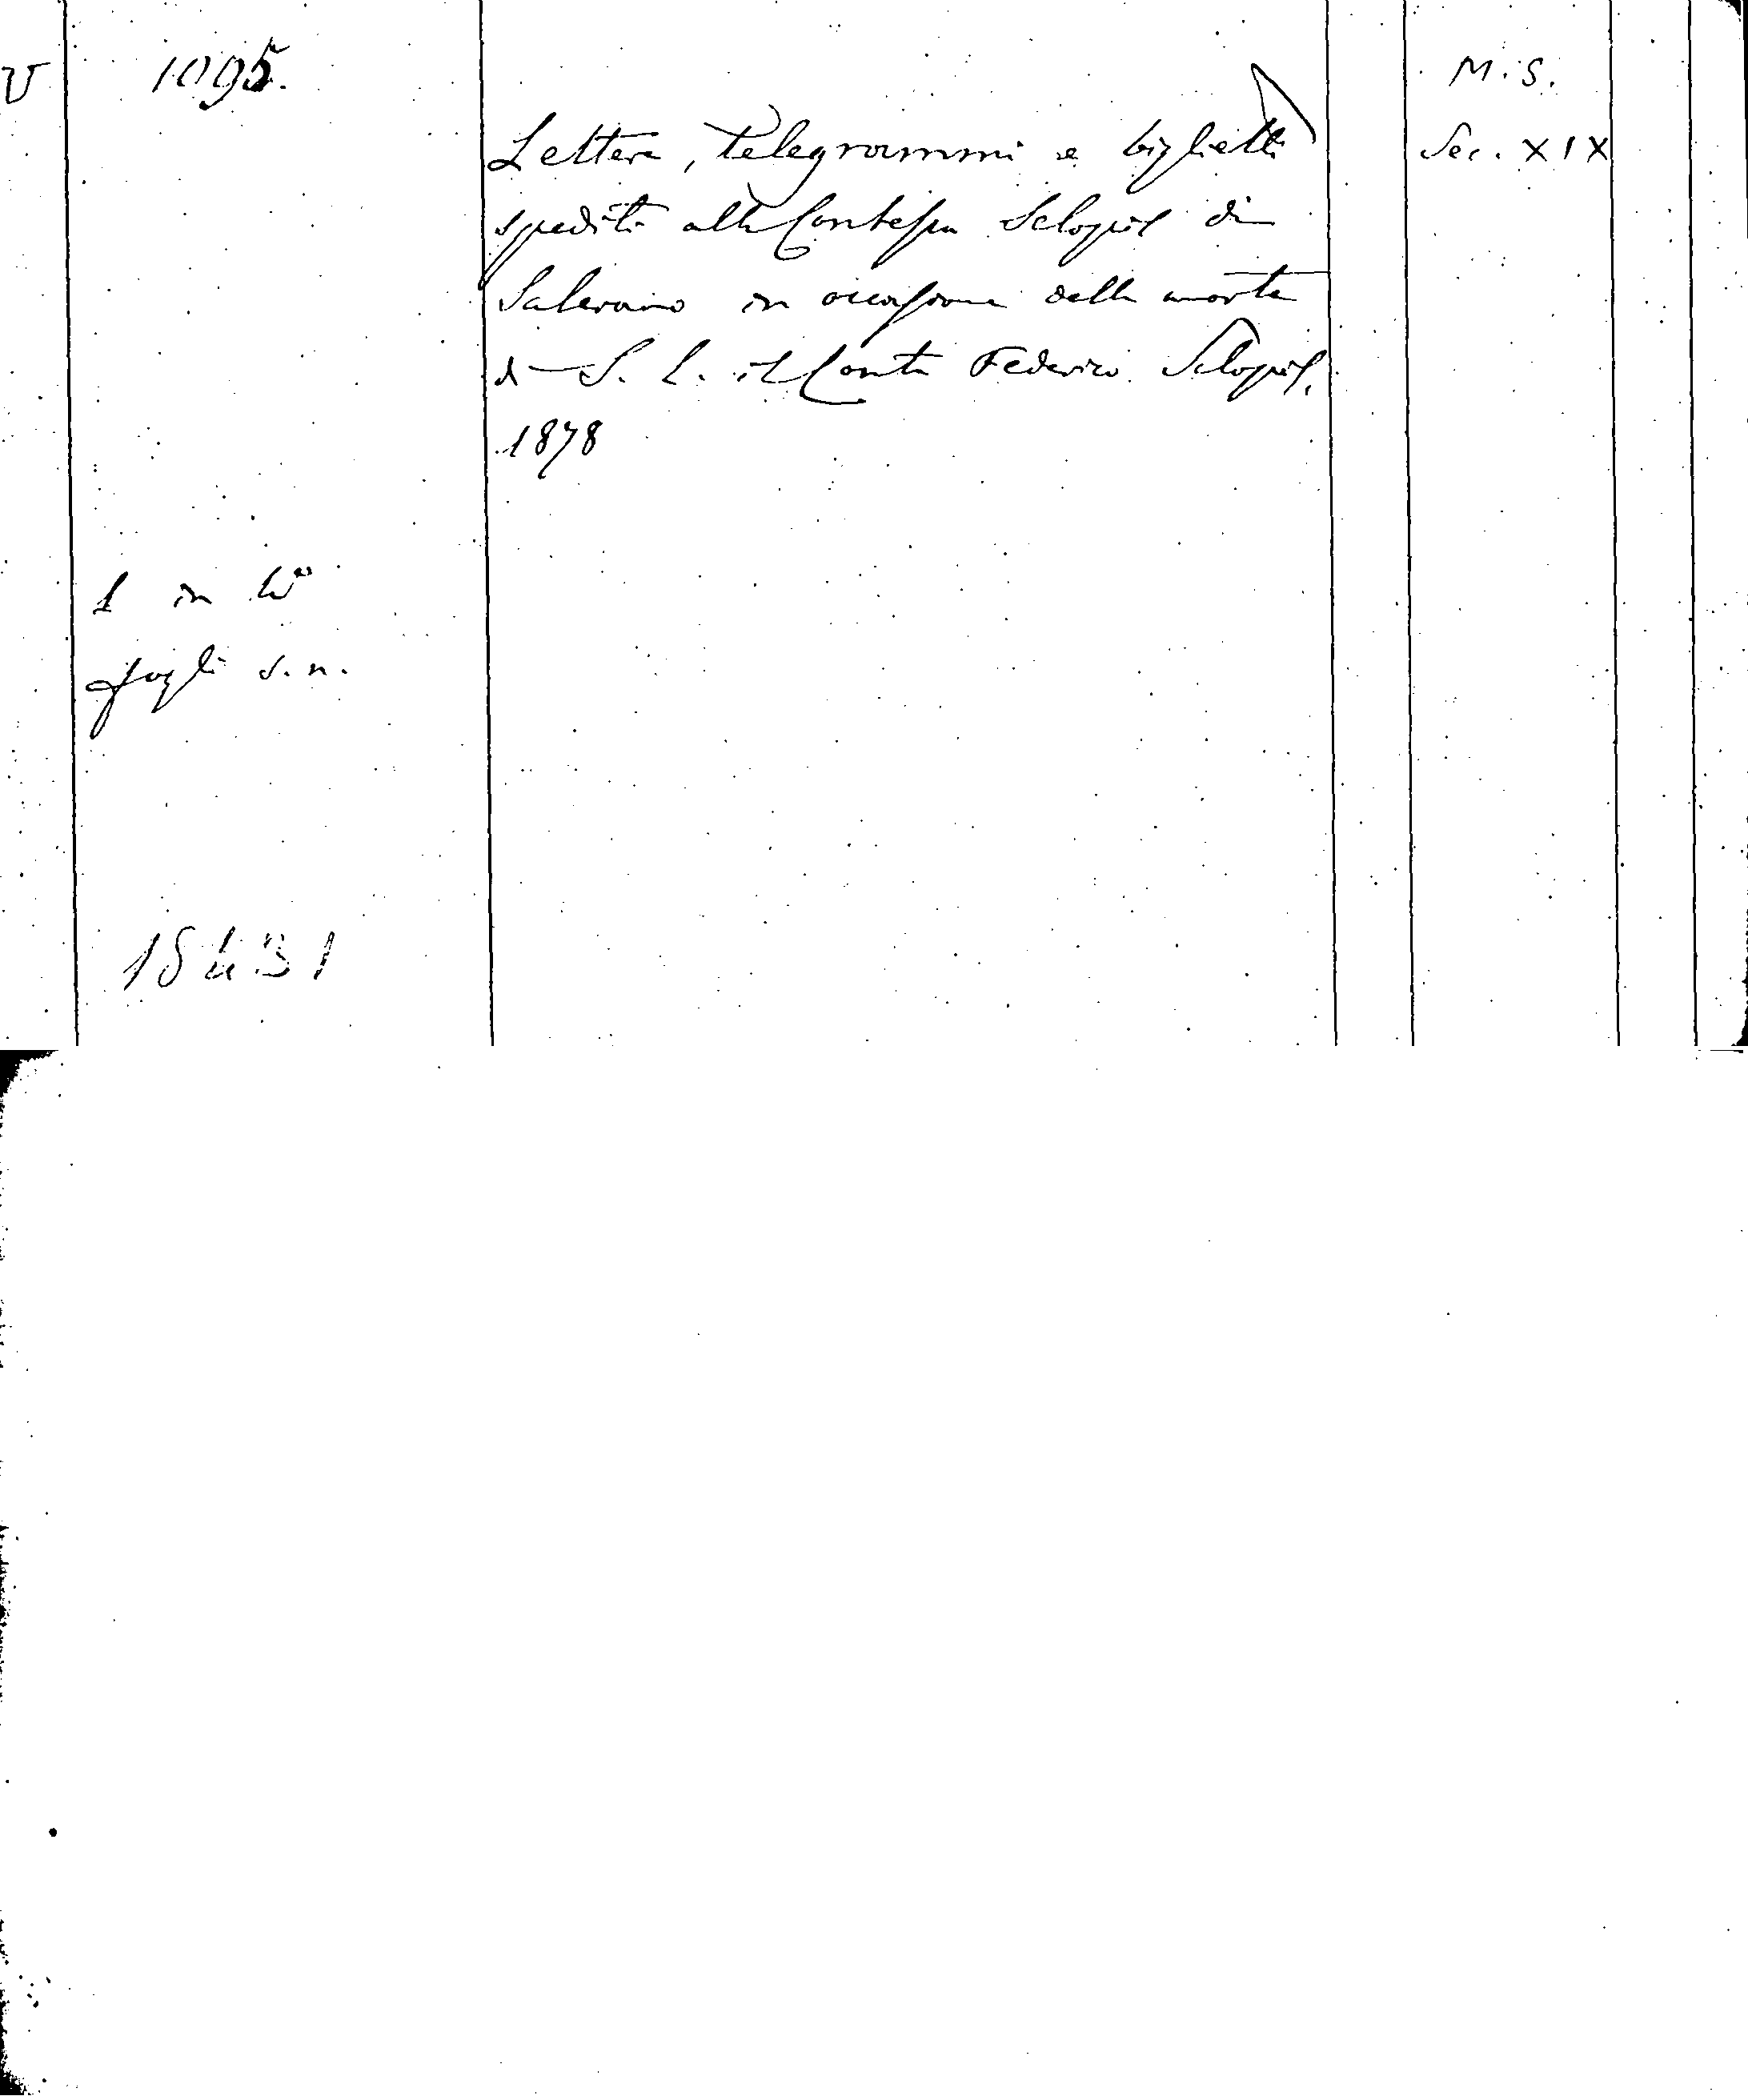 V 1095. M.S.
Lettere, telegrammi e biglietti Sec. XIX
spediti alla Contessa Sclopis di
Salerano in occasione della morte
di S. E. il Conte Federico Sclopis.
1878
1 in 4°
fogli s.n.
15431